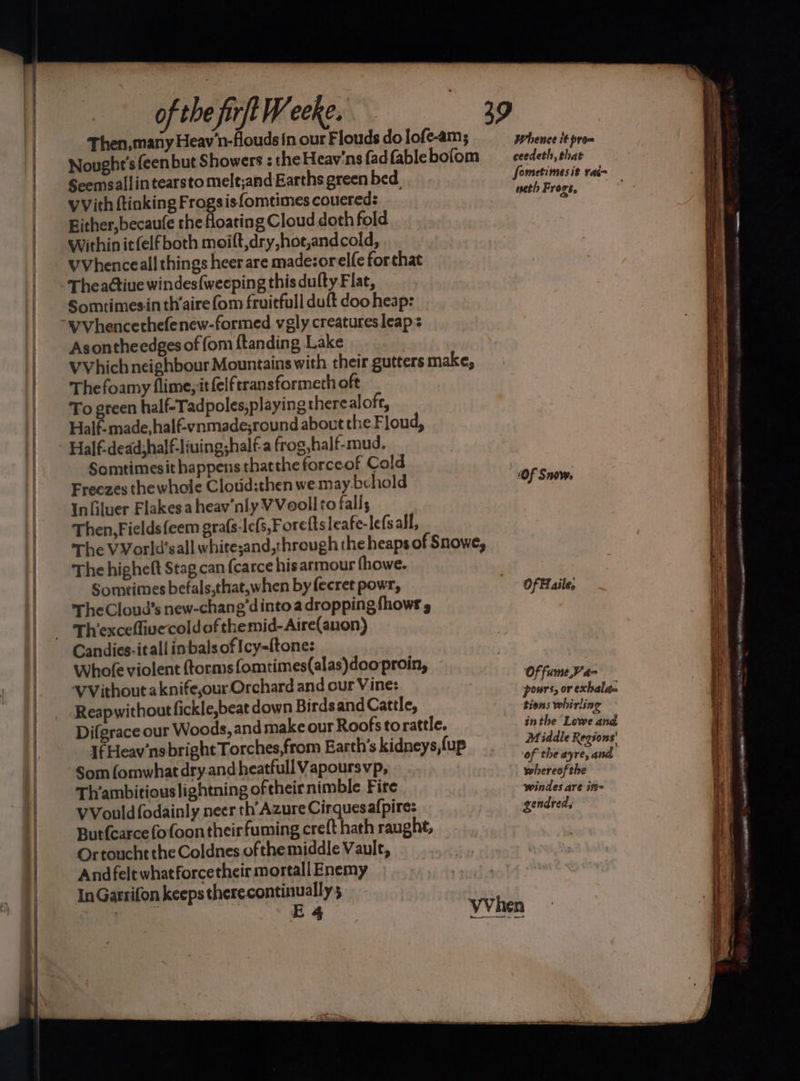 of the firſt Weeke. 39
Then, many Heav'n-flouds in our Flouds do loſe-am;
Nought's ſeen but Showers: the Heav'ns ſad ſable boſom
Seems all in tears to melt; and Earths green bed
VVith ſtinking Frogs is ſomtimes couered:
Either, becauſe the floating Cloud doth fold
Within it ſelf both moiſt, dry, hot, and cold,
VVhence all things heer are made: or elſe for that
The actiue windes ſweeping this duſty Flat,
Somtimes in th'aire ſom fruitfull duſt doo heap:
VVhence theſe new-formed vgly creatures leap:
As on the edges of ſom ſtanding Lake
VVhich neighbour Mountains with their gutters make,
The foamy ſlime, it ſelf transformeth oft
To green half-Tadpoles, playing there aloft,
Half-made, half-vnmade; round about the Floud,
Half-dead, half-liuing; half-a frog, half-mud.
Somtimes it happens that the force of Cold
Freezes the whole Cloud: then we may behold
In ſiluer Flakes a heav'nly VVooll to fall;
Then, Fields ſeem graſs-leſs, Foreſts leafe-leſs all,
The VVorld's all white; and, through the heaps of Snowe,
The higheſt Stag can ſcarce his armour ſhowe.
Somtimes befals, that, when by ſecret powr,
The Cloud's new-chang'd into a dropping ſhowr,
Th'exceſſiue cold of the mid-Aire (anon)
Candies-it all in bals of Icy-ſtone:
Whoſe violent ſtorms ſomtimes (alas) doo proin,
VVithout a knife, our Orchard and our Vine:
Reap without ſickle, beat down Birds and Cattle,
Diſgrace our Woods, and make our Roofs to rattle.
If Heav'ns bright Torches, from Earth's kidneys, ſup
Som ſomwhat dry and heatfull Vapours vp,
Th'ambitious lightning of their nimble Fire
VVould ſodainly neer th'Azure Cirques aſpire:
But ſcarce ſo ſoon their fuming creſt hath raught,
Or toucht the Coldnes of the middle Vault,
And felt what force their mortall Enemy
In Garriſon keeps there continually;
E 4 VVhen
Whence it pro-
ceedeth, that
ſometimes it rai-
neth Frogs.
Of Snow.
Of Haile.
Of fume, Va-
pours, or exhala-
tions whirling
in the Lowe and
Middle Regions
of the ayre, and
whereof the
windes are in-
gendred.